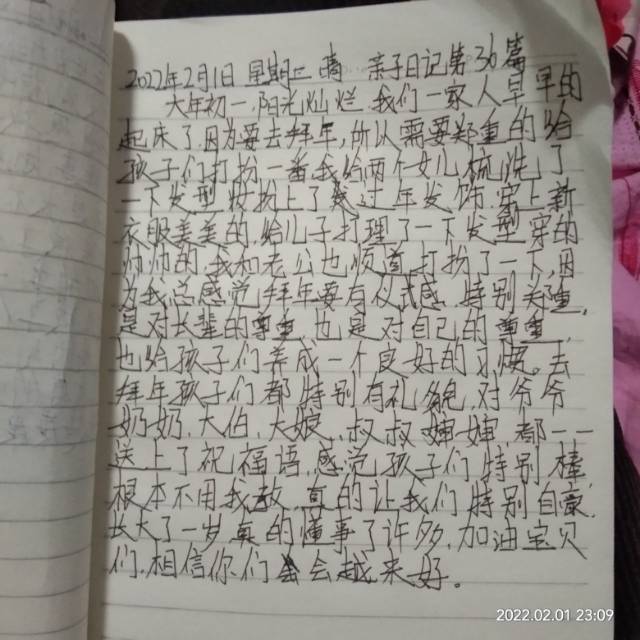 2022年2月1日 星期二 晴 亲子日记第36篇
大年初一,阳光灿烂,我们一家人早早的
起床了因为要去拜年,所以需要郑重的给
孩子们打扮一番我给两个女儿梳洗了
一下发型 妆扮上了过年发饰,穿上新
衣服美美的,给儿子打理了一下发型穿的
帅帅的,我和老公也慎重打扮了一下,因
为我总感觉拜年要有仪式感,特别关重,
是对长辈的尊重,也是对自己的尊重,
也给孩子们养成一个良好的习惯。去
拜年孩子们都特别有礼貌,对爷爷
奶奶,大伯,大娘,叔叔婶婶,都一一
送上了祝福语,感觉孩子们特别棒,
根本不用我教,真的让我们特别自豪,
长大了一岁真的懂事了许多,加油宝贝
们,相信你们会越来好。
2022.02.01 23:09